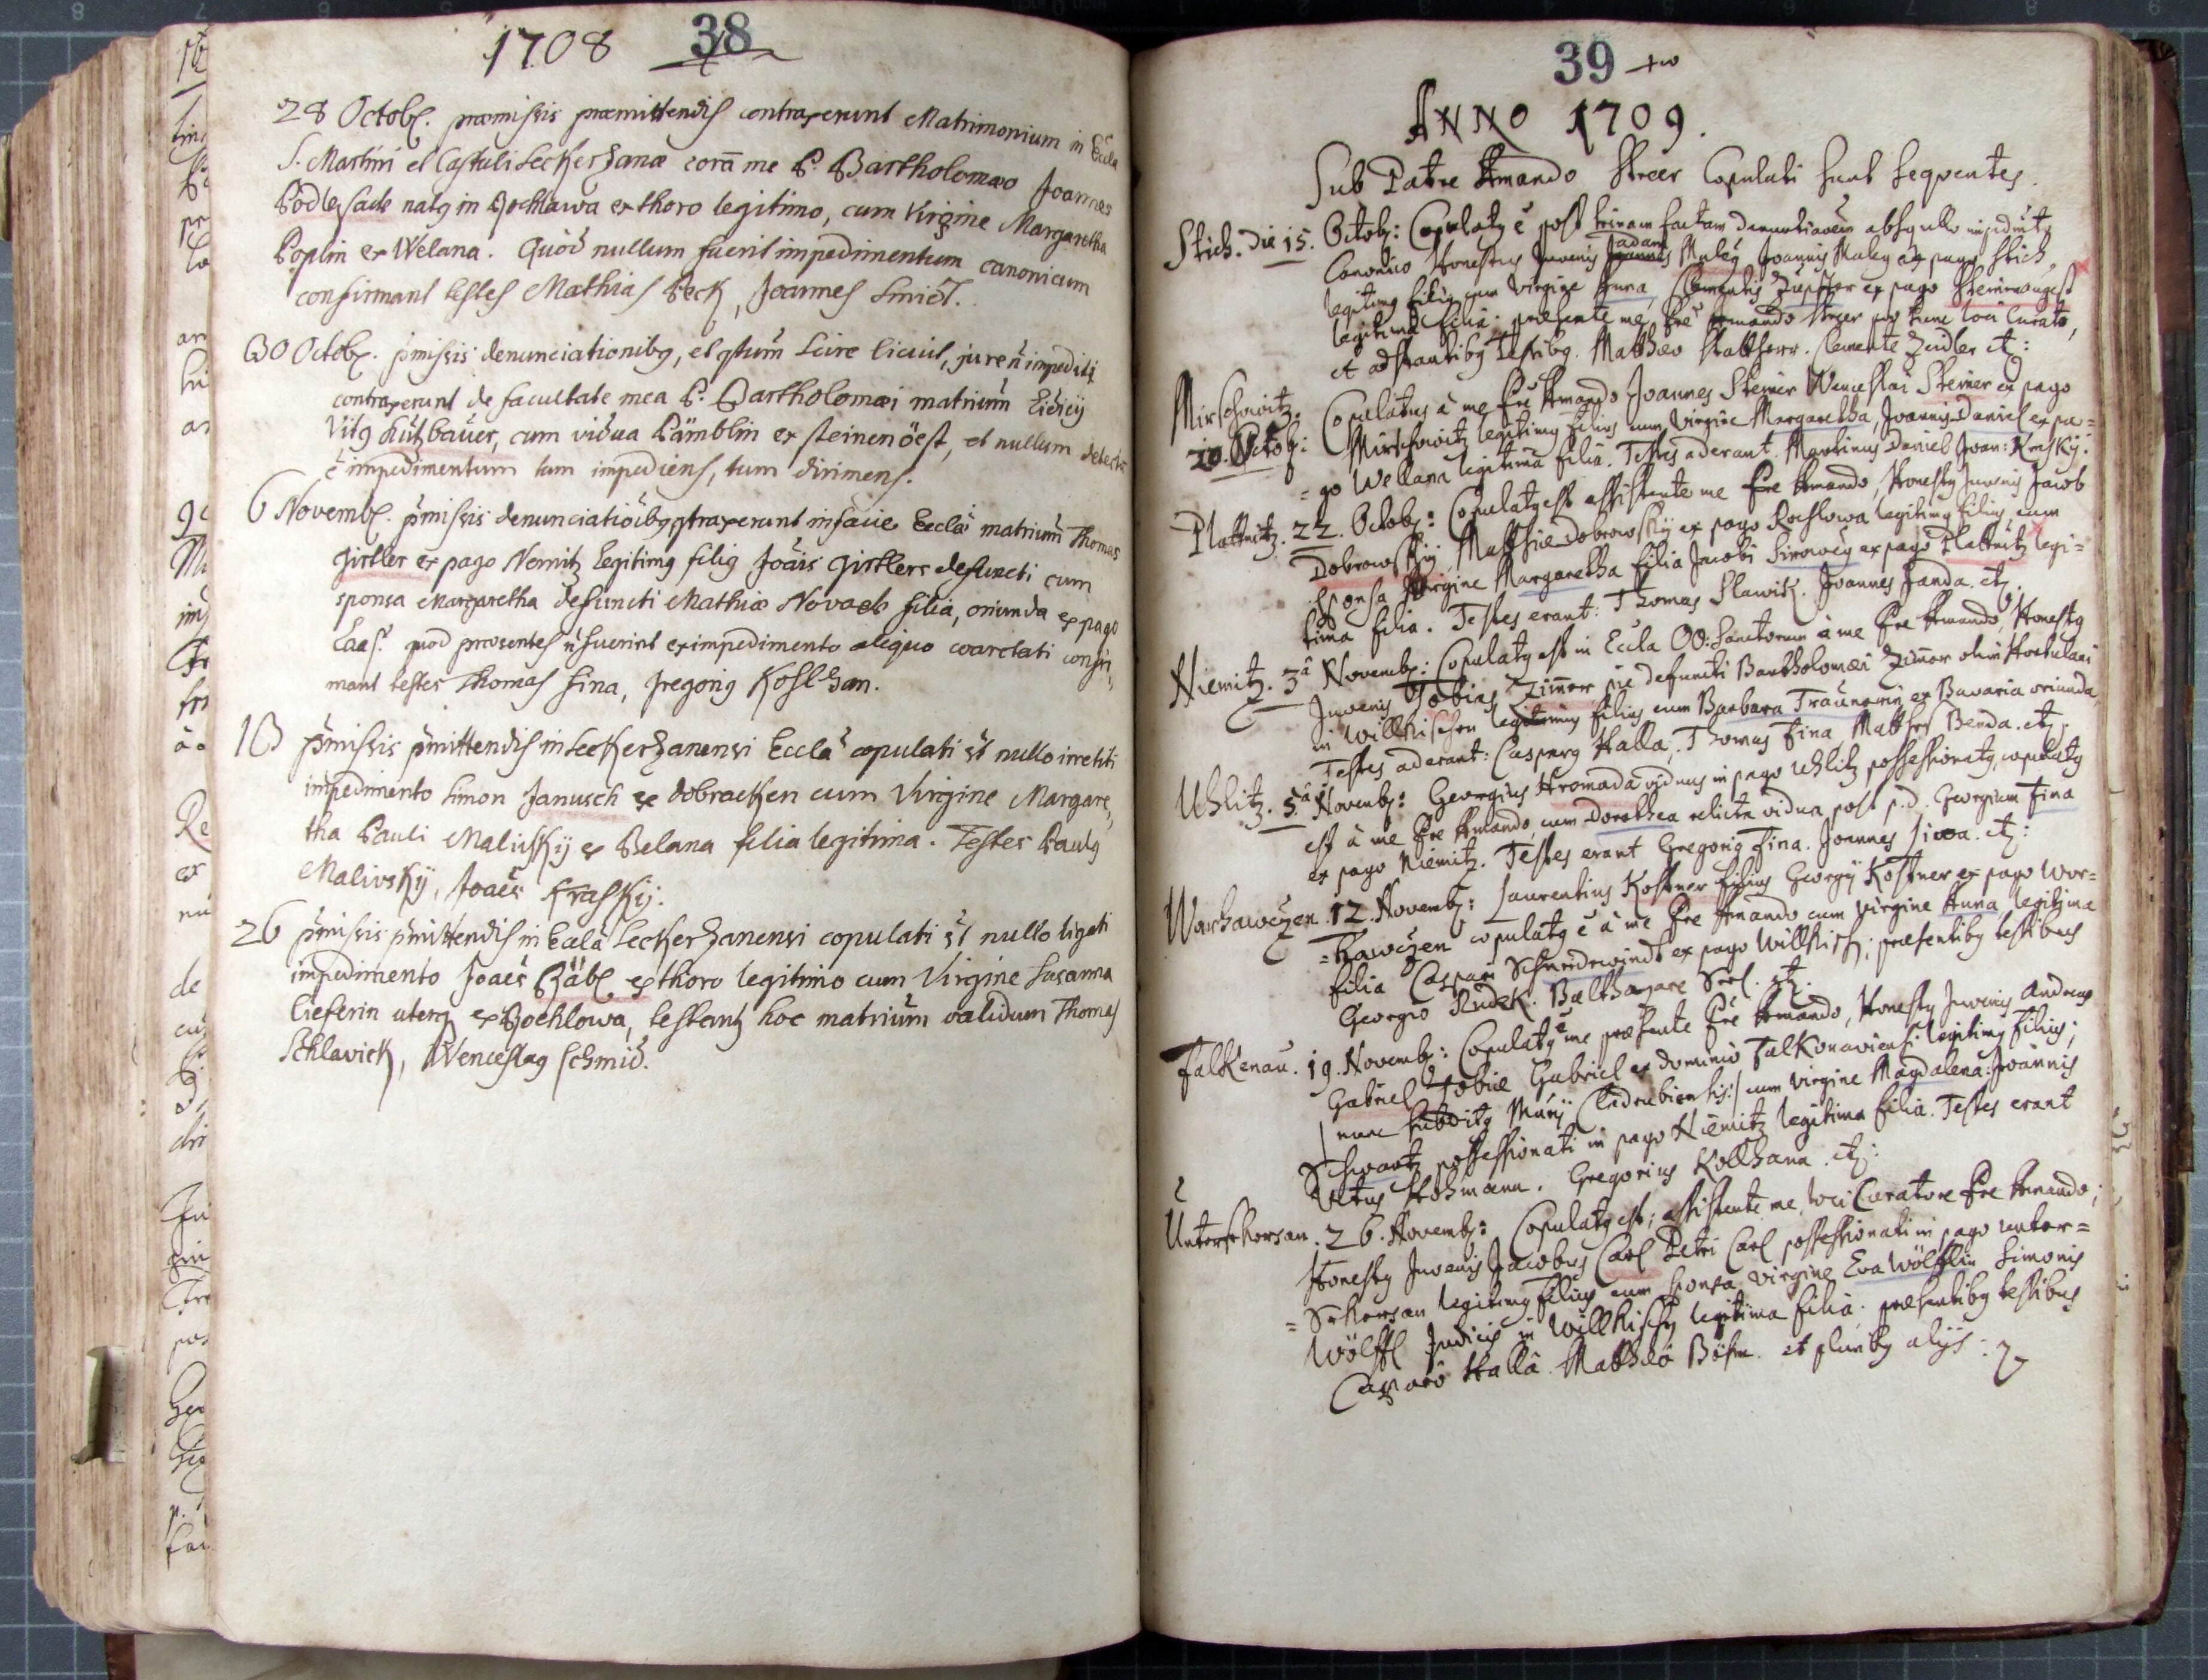 1708 38
28 Octob. præmissis præmittendis contraxerunt Matrimonium in Eccla
S. Martini et Castuli Seckerzanæ corā me P. Bartholomæo Joannes
Podlessack natq in Rochlawa ex thoro legitimo, cum Virgine Margaretha
Poplin ex Welana. Quòd nullum fuerit impedimentum canonicum
confirmant testes Mathias Beck, Joannes Smidt.
30 Octob. p̄missis denunciationibq, et qtum scire licuit, jure n̄ impediti
contraxerunt de facultate mea P. Bartholomæi matriūm
Vitq Kützbauer, cum vidua Pämblin ex steinenöest, et nullum
ē impedimentum tum impediens, tum dirimens.
6 Novemb. p̄missis denunciatiōibq qtraxerunt in facie Ecclæ matriūm Thomas
Girtler ex pago Nemitz legitimq filiq Joāis Girtlers defuncti cum
sponsa Margaretha defuncti Mathiæ Novack filia, oriunda ex pago
Laas. quod præsentes n̄ fuerint ex impedimento aliquo coarctati confir,
mant testes Thomas Fina, Gregoriq Koslhan.
13 p̄missis p̄mittendis in Seckerzanensi Eccla copulati st nullo irretiti
impedimento Simon Janusch ex dobracken cum Virgine Margare,
tha Pauli Malivsky ex Belana filia legitima. Testes Paulq
Malivsky, Joaēs Krasky.
26 p̄missis p̄mittendis in Ecclā Seckerzanensi copulati st nullo ligati
impedimento Joaēs Bäbl ex thoro legitimo cum Virgine Susanna
Lieferin uterq ex Rochlowa, testantq hoc matriūm validum Thomas
Schlavick, Wenceslaq Schmid.
39
ANNO 1709.
Sub Patre Amando Streer Copulati sunt sequentes.
Stich. Die 15. Octob: Copulatq ē post trinam factam denuntiaoem absq ullo impedimto
adam
Canonico Honestus Juvenis Joannes Maleg Joannis Maleg ex pago Stich
legitimq filiq cum Virgine Anna, Clementis ex pago
legitima filia. præsente me Fre Amando Streer pro tunc loci Curato,
et adstantibq Testibq. Matthæo Clemente Zeidler etc:
Mirschowitz. Copulatus à me Fre Amando Joannes Steiner Wenceslai Steiner ex pago
20. Octob: Mirschowitz legitimq filius cum virgine Margaretha, Joannis Daniel ex pa=
=go Wellana legitima filia. Testes aderant. Martinus Daniel Joan: Krasky.
Plattnitz. 22. Octob: Copulatq est assistente me Fre Amando, Honestq Juvenis Jacob
Dobrowsky, Matthiæ Dobrowsky ex pago Rochlowa legitimq filius cum
sponsa Virgine Margaretha filia Jacobi Sirowey ex pago Plattnitz legi=
tima filia. Testes erant: Thomas Slawik. Joannes Janda. etc.
Niemitz. 3ª Novemb: Copulatq est in Eccla OO: Sanctorum à me Fre Amando, Honestq
Juvenis Tobias Zimer pie defuncti Bartholomæi Zimer olim Hortulani
in Willkischen legitimus filius cum Barbara Traunerin ex Bavaria oriunda
Testes aderant: Casparq Halla, Thomas Fina Matthes Benda. etc:
Uhlitz. 5ª Novemb: Georgius Hromada viduus in pago Uhlitz possessionatq, copulatq
est à me Fre Amando, cum Dorothea relicta vidua post p.d. Georgium Fina
ex pago Niemitz. Testes erant Gregoriq Fina. Joannes Siwa. etc:
Worhawczen. 12. Novemb: Laurentius Kostner filius Georgij Kostner ex pago Wor=
=hawczen copulatq ē à me Fre Amando cum virgine Anna legitima
filia Caspari Schneidewindt ex pago Willkisch; præsentibq testibus
Georgio Rudek. Balthasare Srl. etc.
Falkenau. 19. Novemb: Copulatq ē me præsente Fre Amando, Honestq Juvenis Andreas
Gabriel Tobiæ Gabriel ex dominio Falkonaviensi legitimq filius;
nunc Cladrubiensis:/ cum virgine Magdalena: Joannis
Schwartz possessionati in pago Niemitz legitima filia. Testes erant
Vitus Hohmann. Gregorius Kollhana. etc:
Untersekersan. 26. Novemb: Copulatq est; assistente me, loci Curatore Fre Amando;
Honestq Juvenis Jacobus Carl Petri Carl possessionati in pago unter=
=Sekersan legitimq filius cum sponsa virgine Eva Wölfflin Simonis
Wölffl Judicis in Willkisch legitima filia; præsentibq testibus
Casparo Halla. Matthæo Böhm. et pluribq alijs.